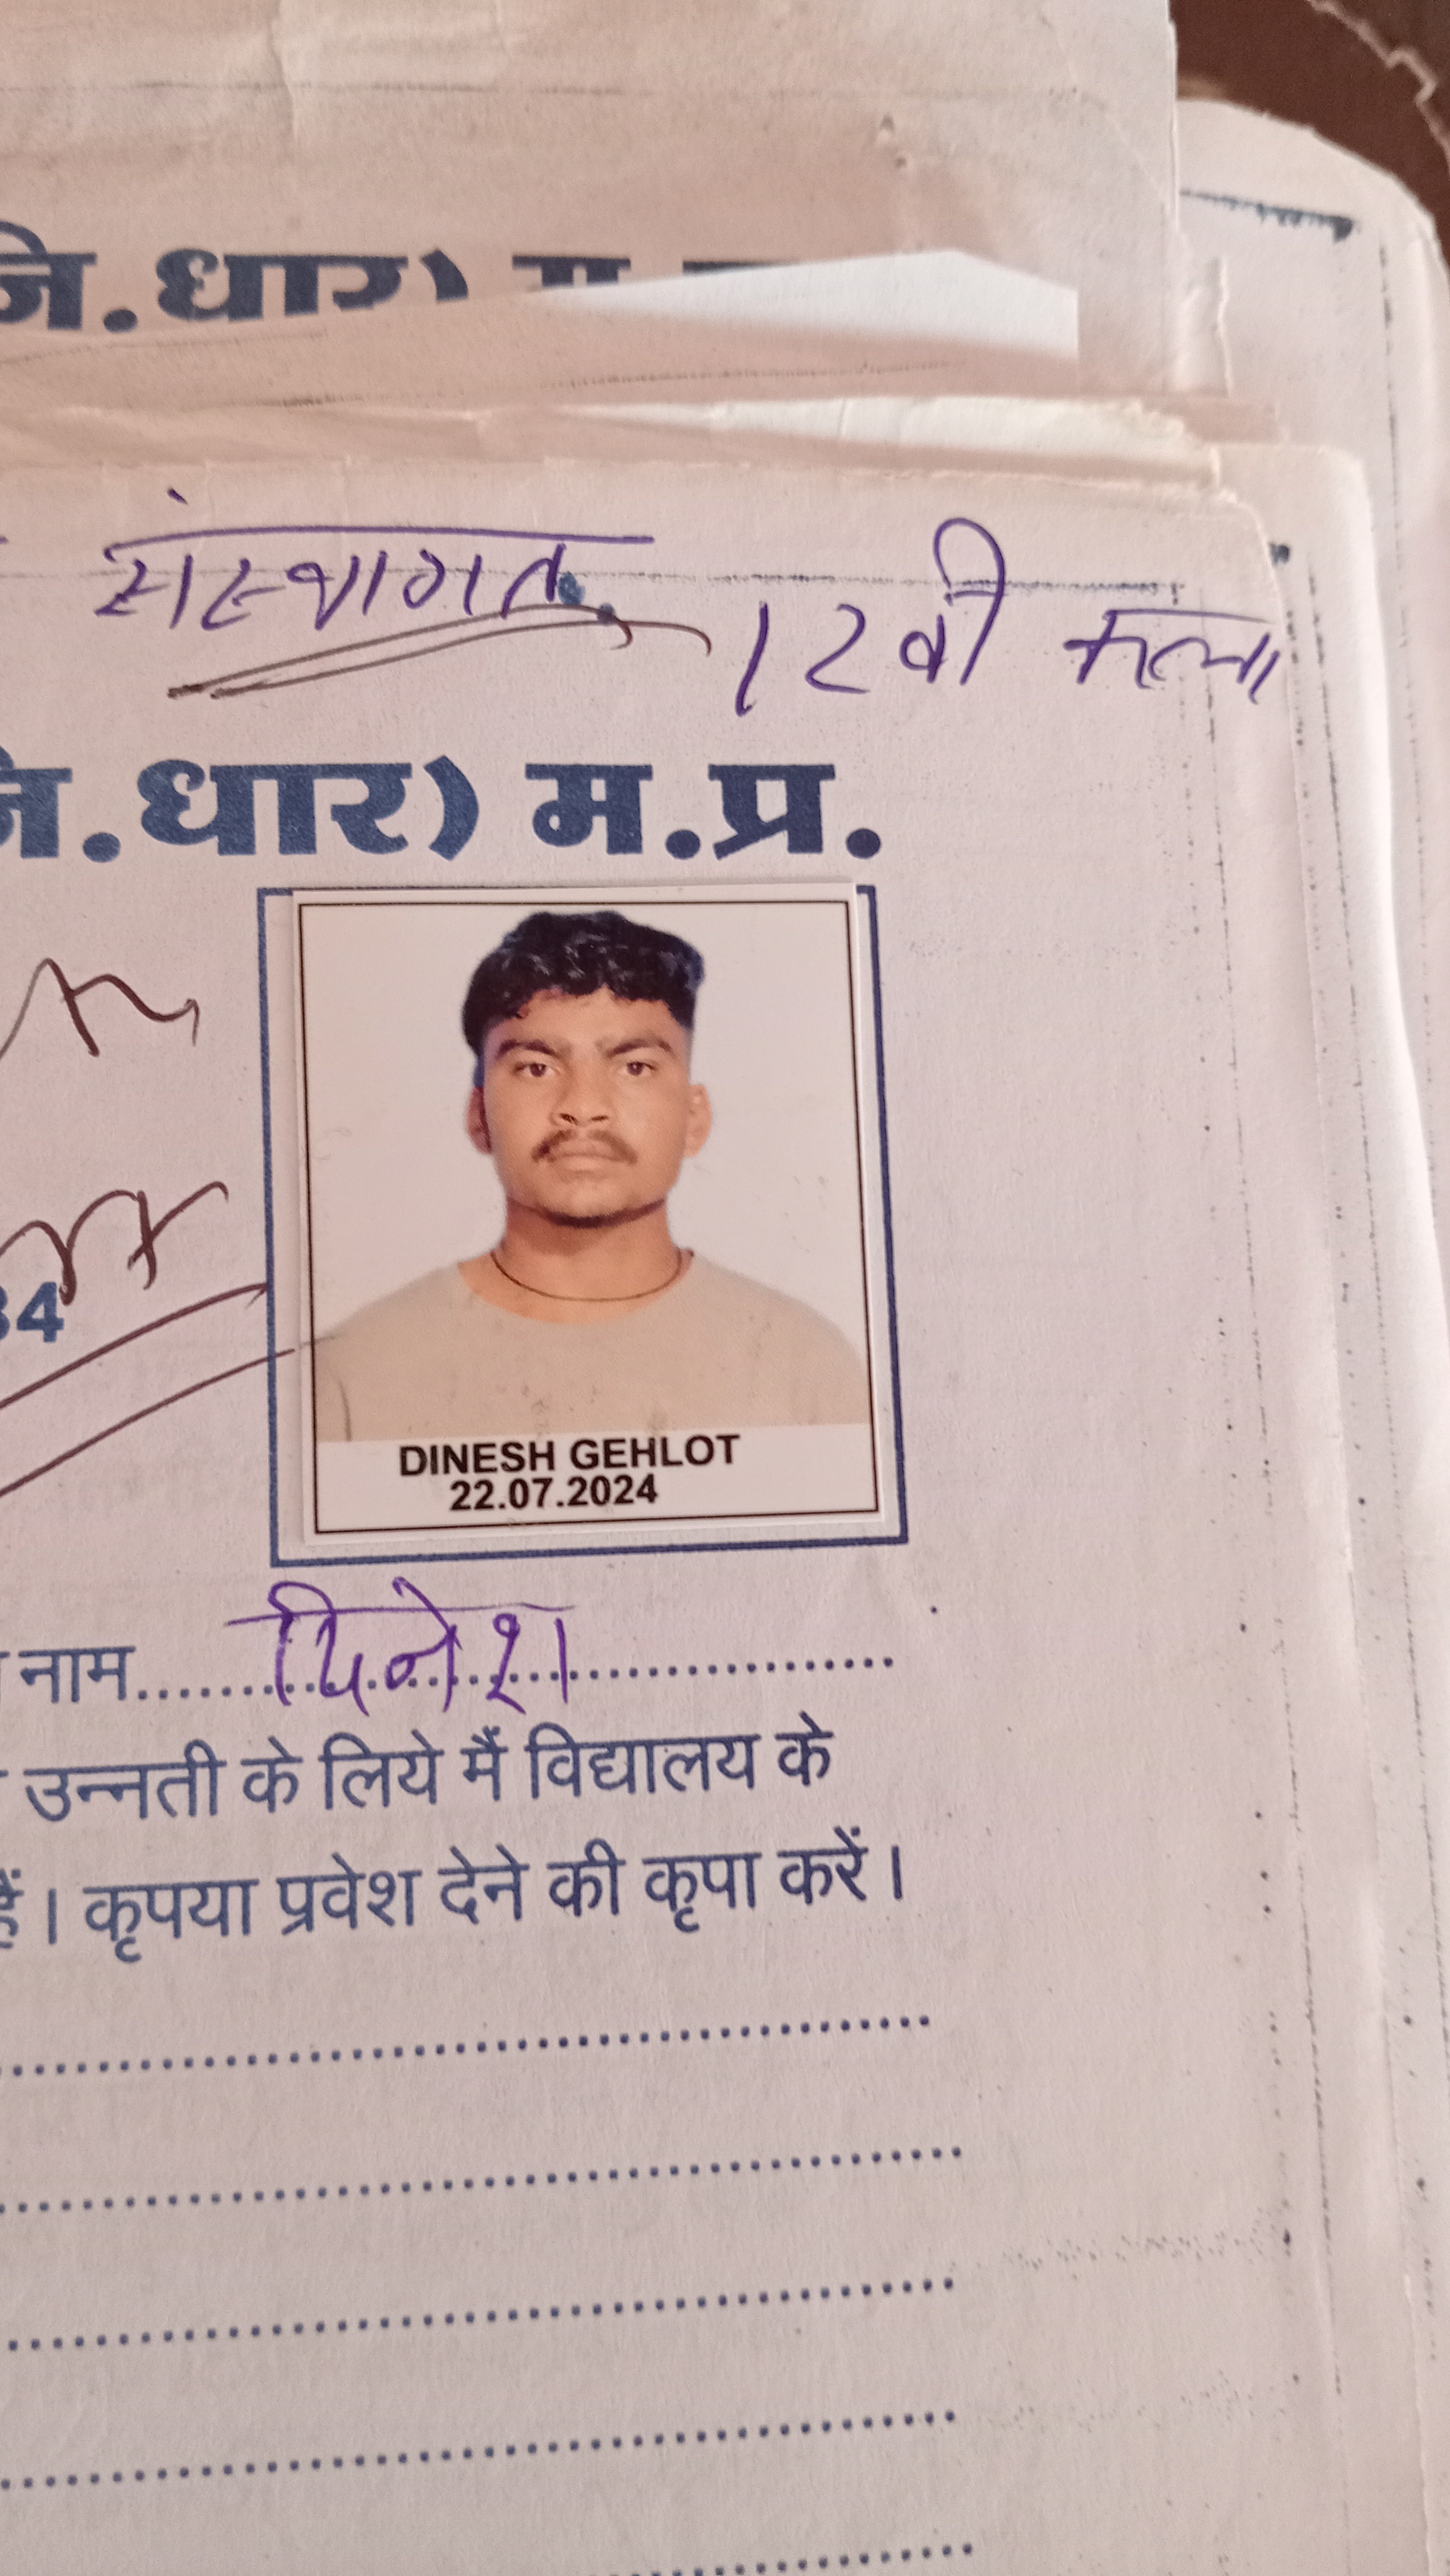 जि.धार) म
संस्थागत
12वी कला
जि.धार) म.प्र.
34
DINESH GEHLOT
22.07.2024
नाम.....दिनेश.....
उन्नती के लिये मैं विद्यालय के
हैं। कृपया प्रवेश देने की कृपा करें।